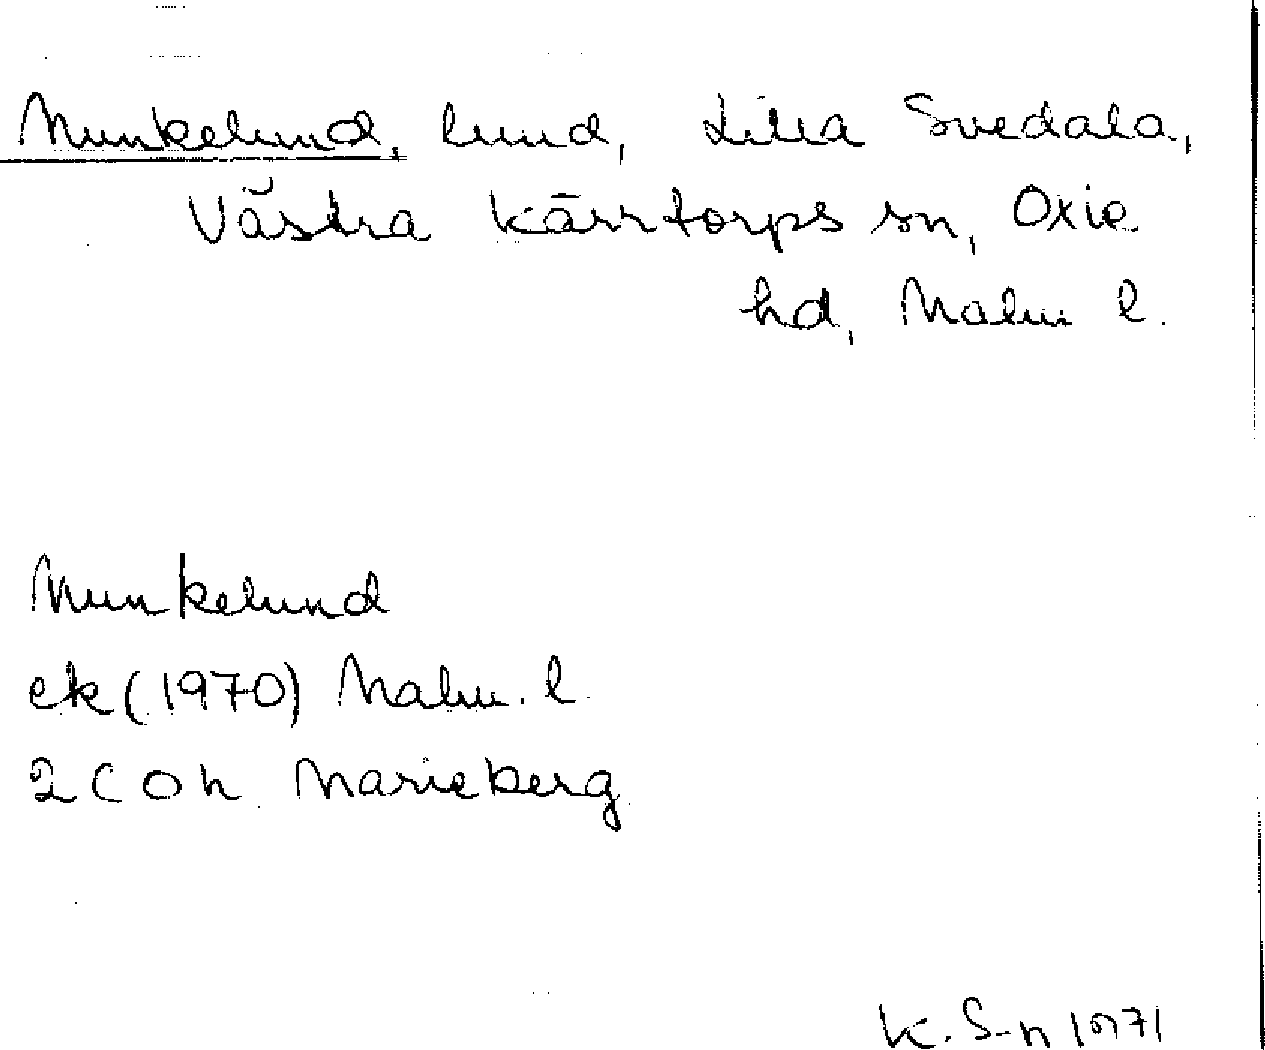 Munkelund, lund, Lilla Svedala,
Västra Kärrtorps sn, Oxie
hd, Malm. l.
Munkelund
ek (1970) Malm. l.
2 C 0 h Marieberg
K. S-n 1971